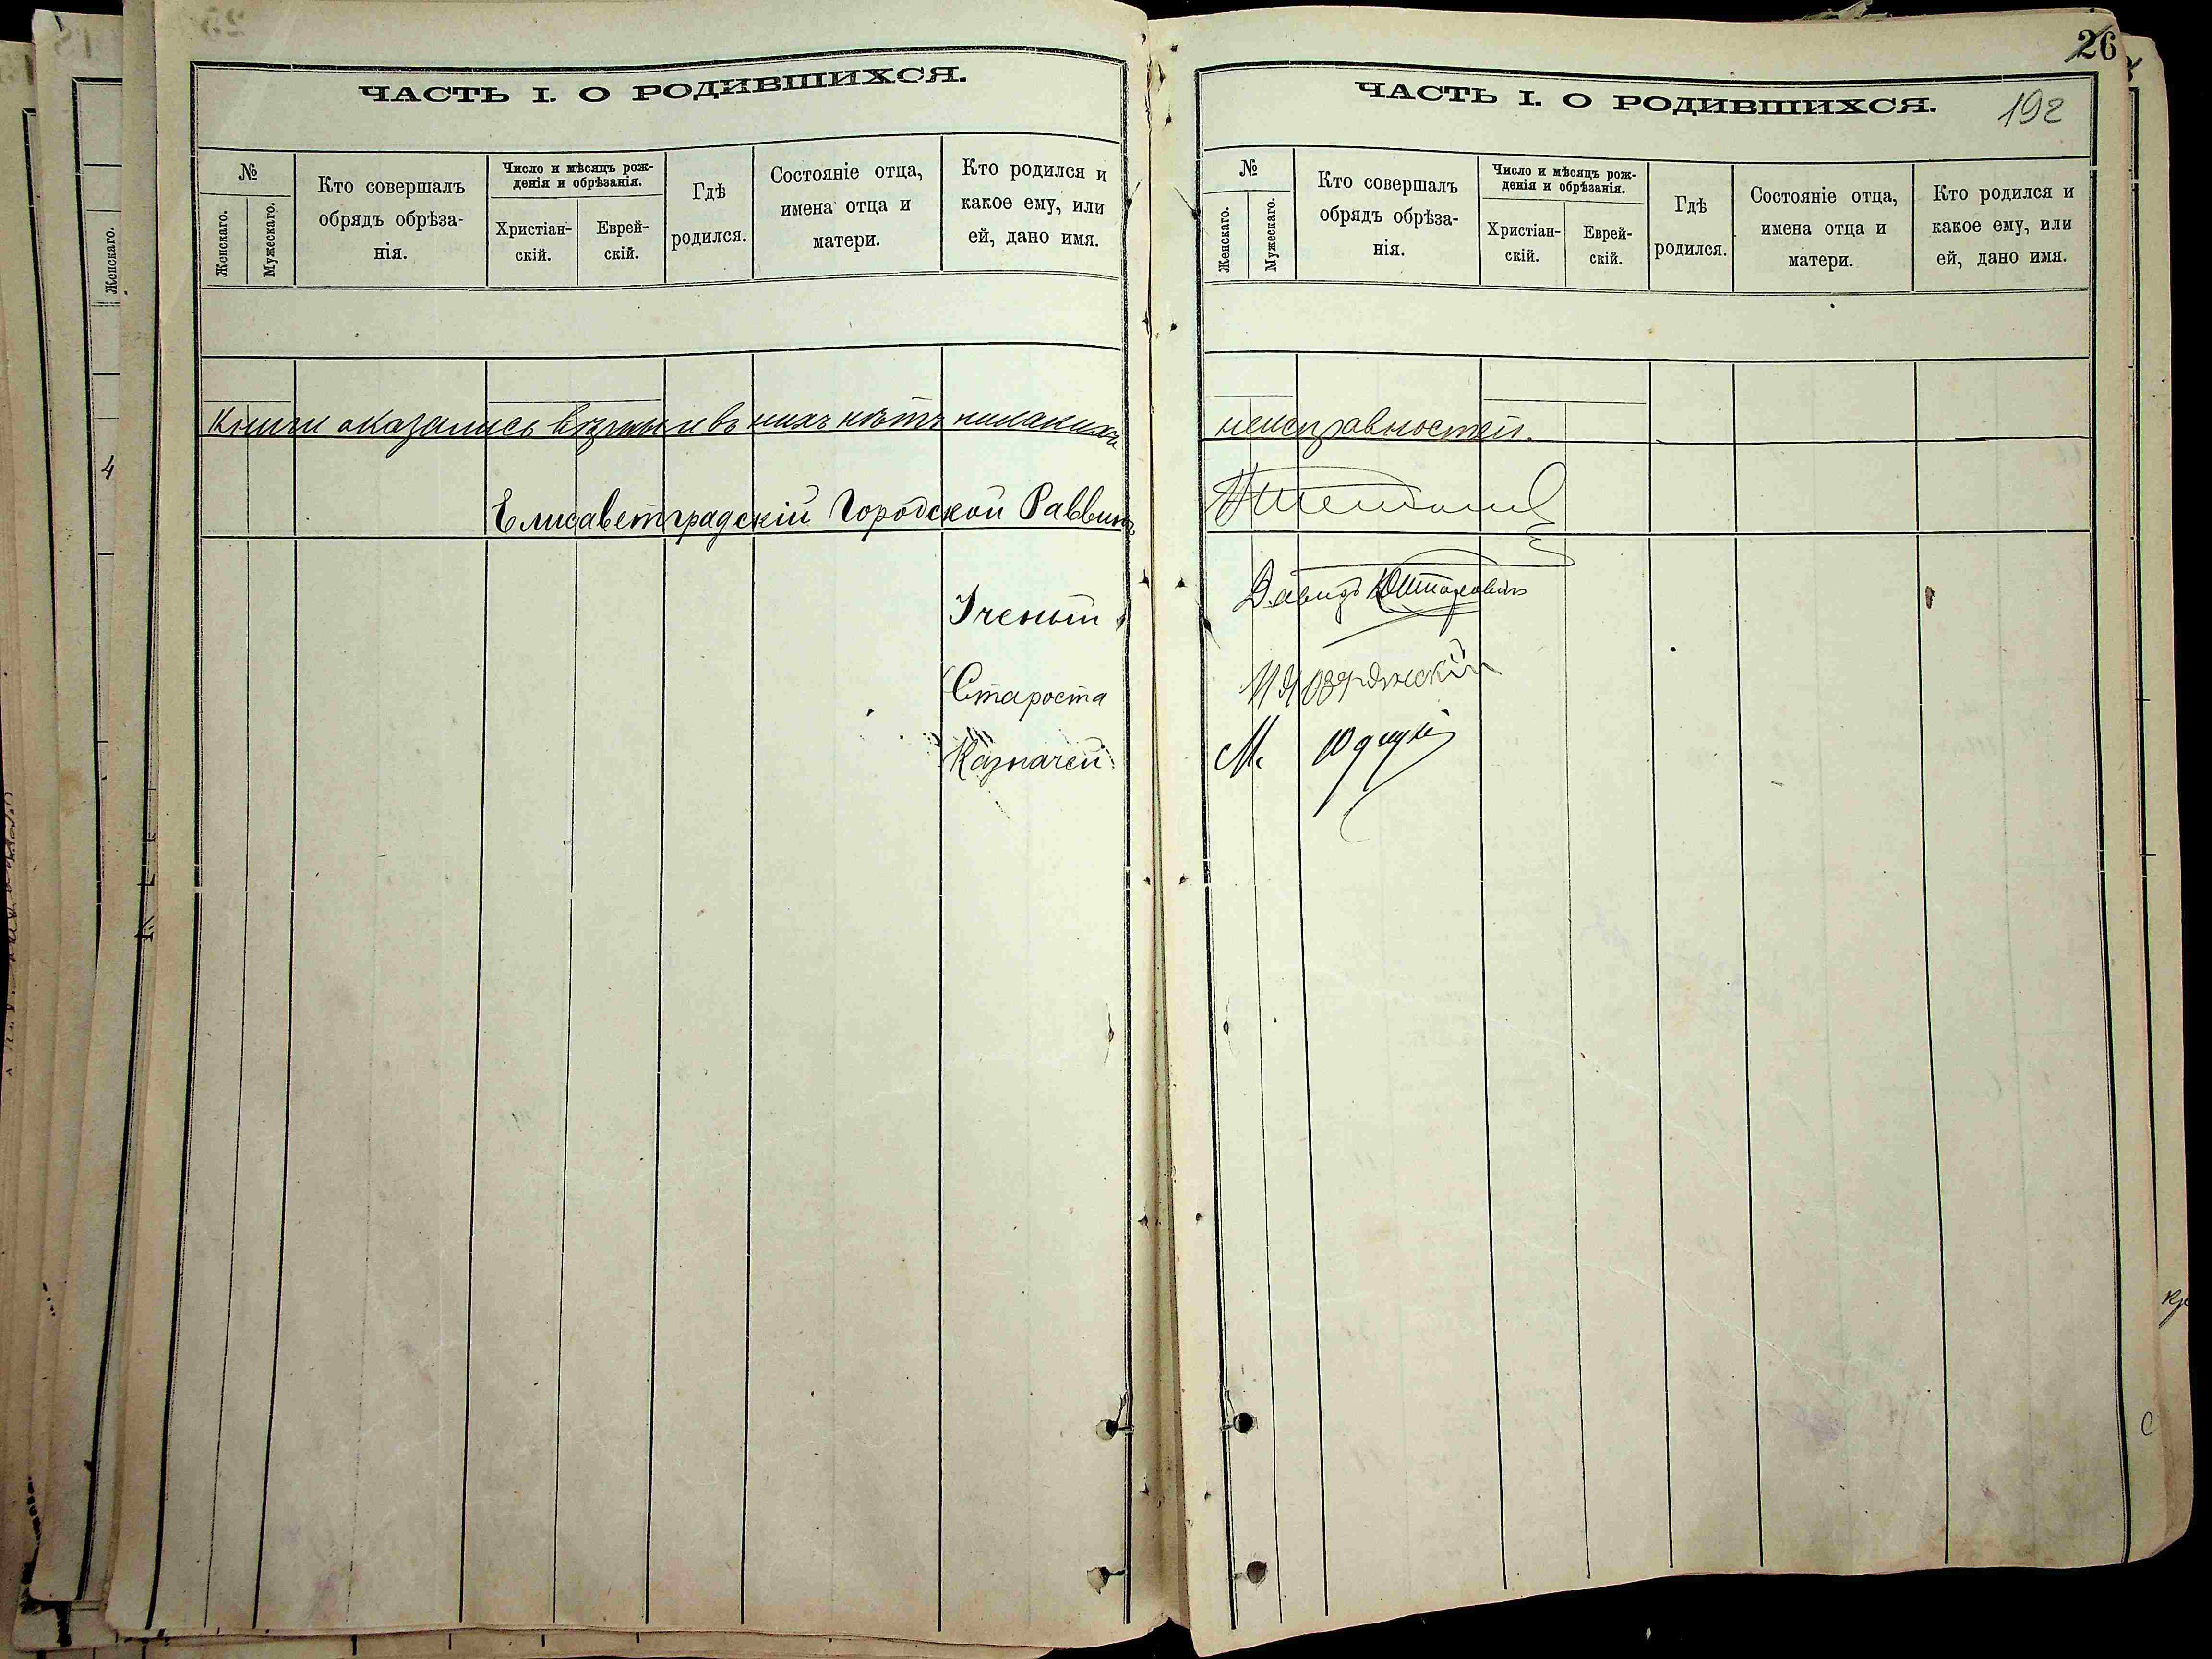 ЧАСТЬ I. О РОДИВШИХСЯ.
№
Женскаго.
Мужескаго.
Кто совершалъ
обрядъ обрѣза-
нія.
Число и мѣсяцъ рож-
денія и обрѣзанія.
Христіан-
скій.
Еврей-
скій.
Гдѣ
родился.
Состояніе отца,
имена отца и
матери.
Кто родился и
какое ему, или
ей, дано имя.
книги оказались и въ нихъ нѣтъ никакихъ
Елисаветградскій Городской Раввинъ
Ученый
Староста
Казначей
26
192
ЧАСТЬ I. О РОДИВШИХСЯ.
№
Женскаго.
Мужескаго.
Кто совершалъ
обрядъ обрѣза-
нія.
Число и мѣсяцъ рож-
денія и обрѣзанія.
Христіан-
скій.
Еврей-
скій.
Гдѣ
родился.
Состояніе отца,
имена отца и
матери.
Кто родился и
какое ему, или
ей, дано имя.
неисправностей.
Давидъ
М.
Женскаго.
4